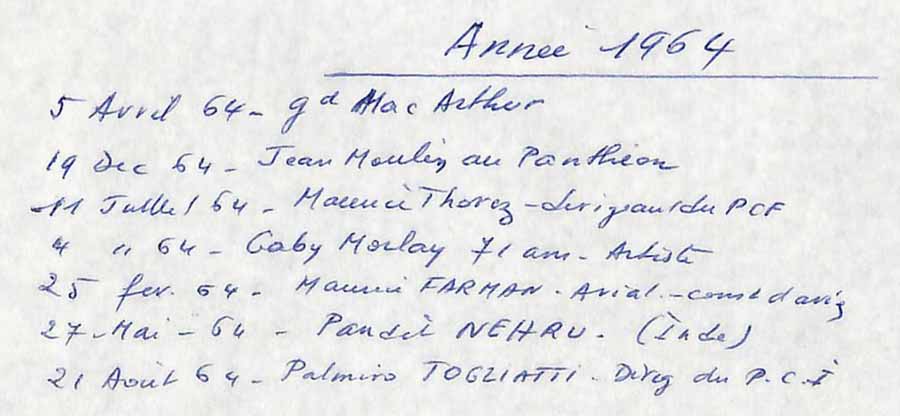 Année 1964
5 Avril 64 - gd Mac Arthur
19 Dec 64 - Jean Moulin au Panthéon
11 Juillet 64 - Maurice Thorez - dirigeant du PCF
" " 64 - Gaby Morlay 71 ans - Artiste
25 fev. 64 - Maurice FARMAN - Aviat. - const d'avia
27 Mai - 64 - Pandit NEHRU. (Inde)
21 Août 64 - Palmiro TOGLIATTI - Dirig du P.C.I